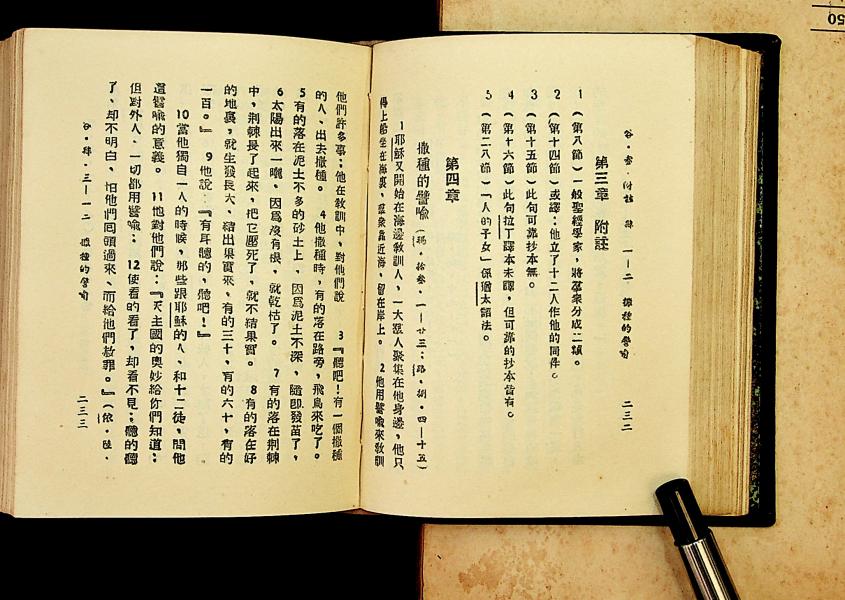 谷·叁·附註 肆 一—二 撒種的譬喻 二三二
第三章 附註
1（第八節）一般聖經學家，將羣衆分成二類。
2（第十四節）或譯：他立了十二人作他的同伴。
3（第十五節）此句可靠抄本無。
4（第十六節）此句拉丁譯本未譯，但可靠的抄本皆有。
5（第二八節）「人的子女」係猶太語法。
第四章
撒種的譬喻（瑪·拾叁·一—廿三；路·捌·四—十五）
1 耶穌又開始在海邊教訓人，一大羣人聚集在他身邊，他只
得上船坐在海裏，羣衆靠近海，留在岸上。 2 他用譬喻來教訓
他們許多事；他在教訓中，對他們說 3『聽吧！有一個撒種
的人，出去撒種。 4 他撒種時，有的落在路旁，飛鳥來吃了。
5 有的落在泥土不多的砂土上，因爲泥土不深，隨即發苗了，
6 太陽出來一曬，因爲沒有根，就乾枯了。 7 有的落在荆棘
中，荆棘長了起來，把它壓死了，就不結果實。 8 有的落在好
的地裏，就生發長大，結出果實來，有的三十，有的六十，有的
一百。』 9 他說：『有耳聽的，聽吧！』
10 當他獨自一人的時候，那些跟耶穌的人，和十二徒，問他
這譬喻的意義。 11 他對他們說：『天主國的奧妙給你們知道；
但對外人，一切都用譬喻； 12 使看的看了，却看不見；聽的聽
了，却不明白，怕他們回頭過來、而給他們赦罪。』（依·陸·
谷·肆·三—一二 撒種的譬喻 二三三
50